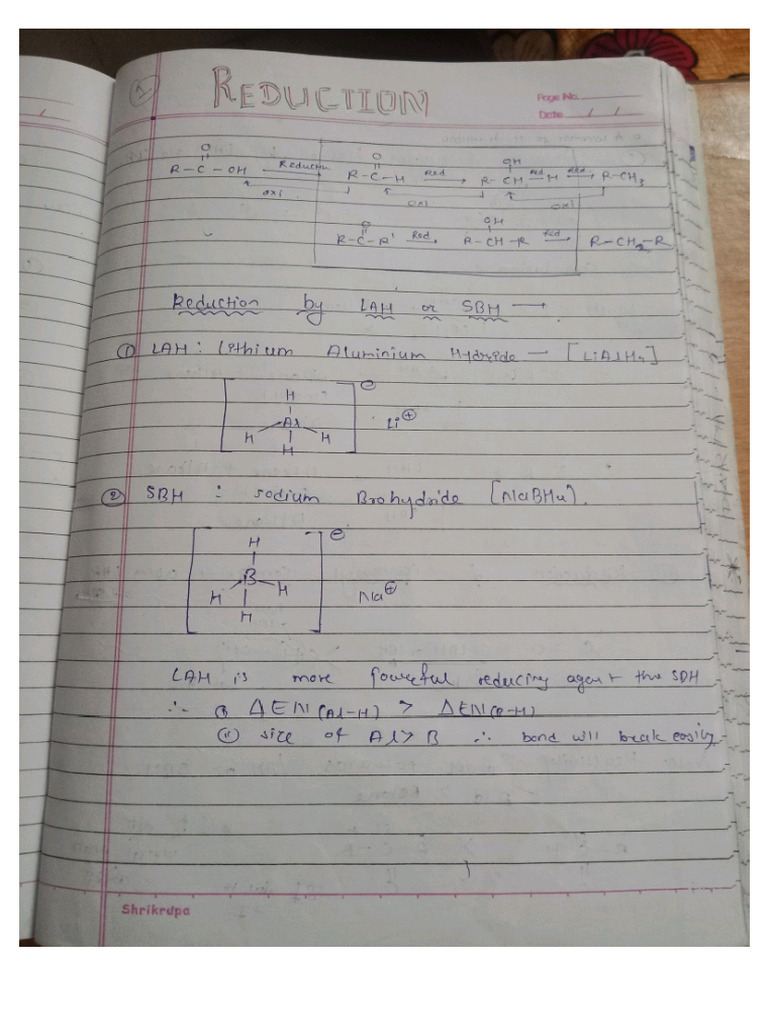 1
REDUCTION
Page No.
Date / /
O OH
R-C-OH Reducti R-C-H Red R-CH-H Red R-CH3
oxi oxi oxi
O OH
R-C-R' Red. R-CH-R Red R-CH2-R
Reduction by LAH or SBH →
① LAH : Lithium Aluminium Hydride — [LiAlH4]
H ⊖
Al Li⊕
H H
H
② SBH : sodium Brohydride [NaBH4].
H ⊖
B
H H Na⊕
H
LAH is more powerful reducing agent tha SBH
∴ (i) ΔEN(Al-H) > ΔEN(B-H)
(ii) size of Al > B ∴ bond will break easily
Shrikrupa